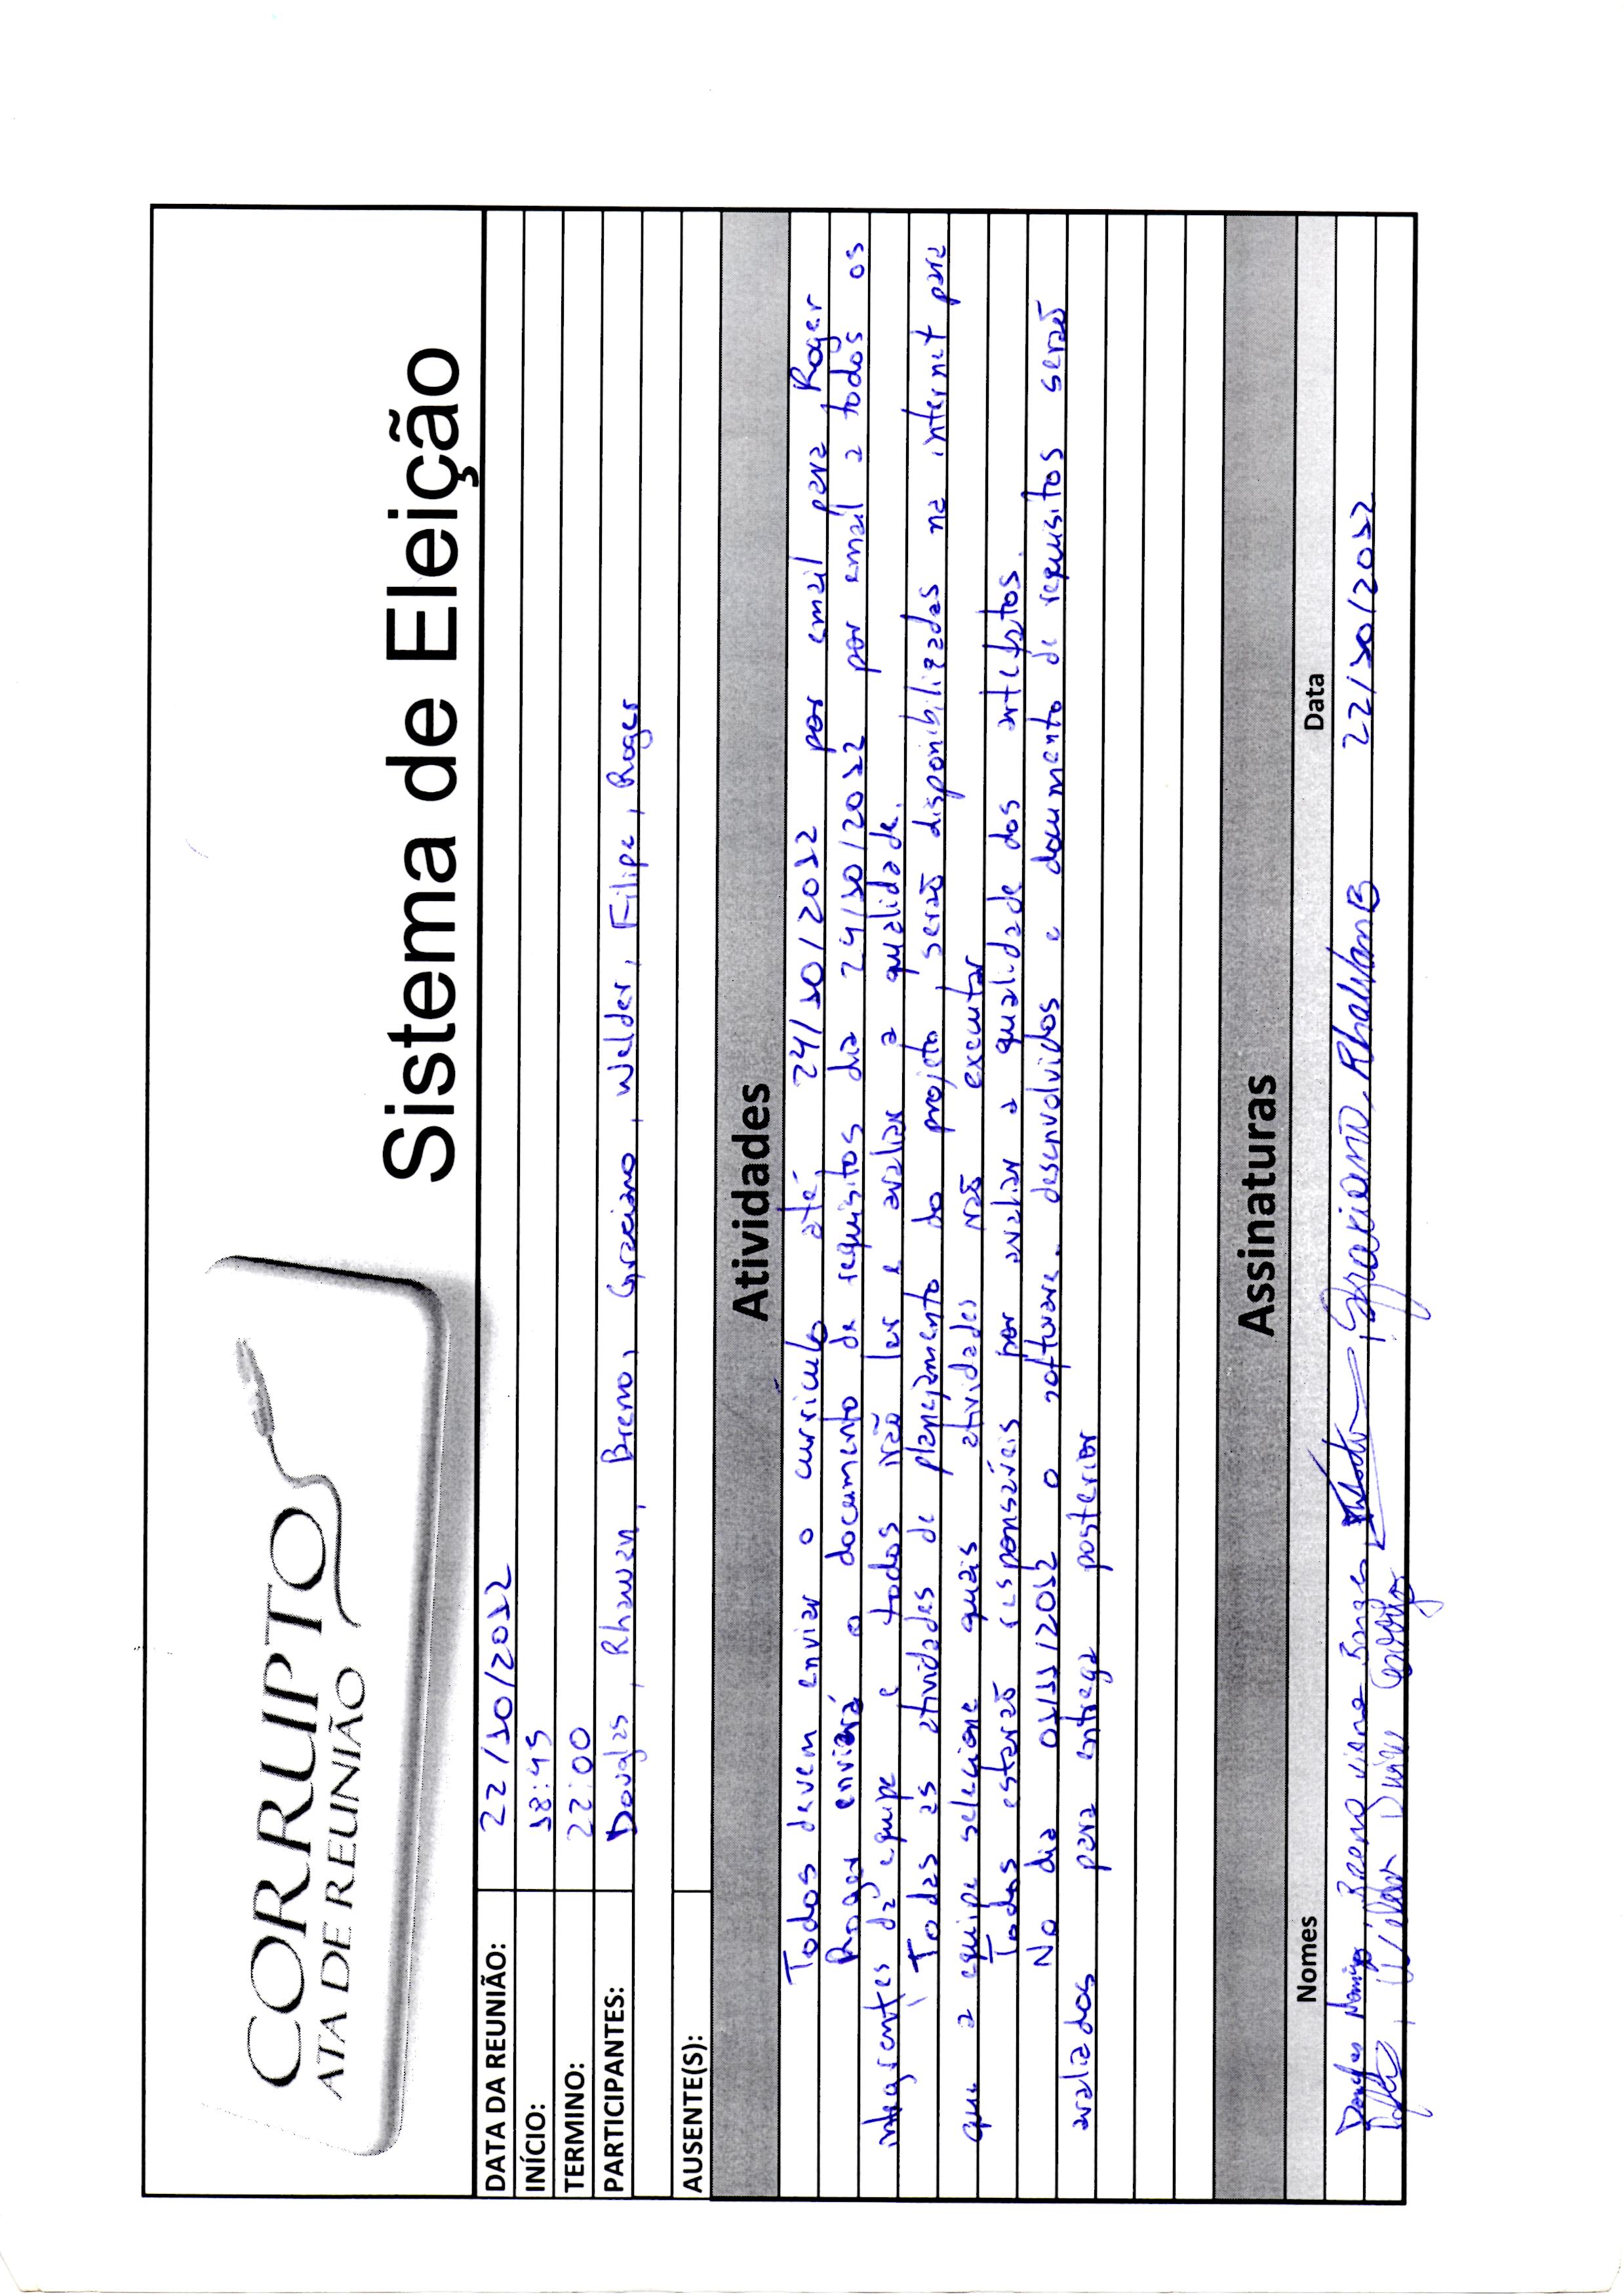 CORRUPTO
ATA DE REUNIÃO
Sistema de Eleição
DATA DA REUNIÃO: 22/10/2012
INÍCIO: 18:45
TERMINO: 22:00
PARTICIPANTES: Douglas, Rhawan, Breno, Graciano, Welder, Filipe, Roger
AUSENTE(S):
Atividades
Todos devem enviar o curriculo até 24/10/2012 por email para Roger
Roger enviará o documento de requisitos dia 24/10/2012 por email a todos os
integrantes da equipe e todos vão ler e avaliar a qualidade.
Todas as atividades de planejamento do projeto serão disponibilizadas na internet para
que a equipe selecione quais atividades vão executar
Todos estarão responsáveis por avaliar a qualidade dos artefatos.
No dia 01/11/2012 o software desenvolvidos e documento de requisitos serão
avaliados para entrega posterior
Assinaturas
Nomes Data
Breno Viana Graciano, Rhawan B 22/10/2012
Welder